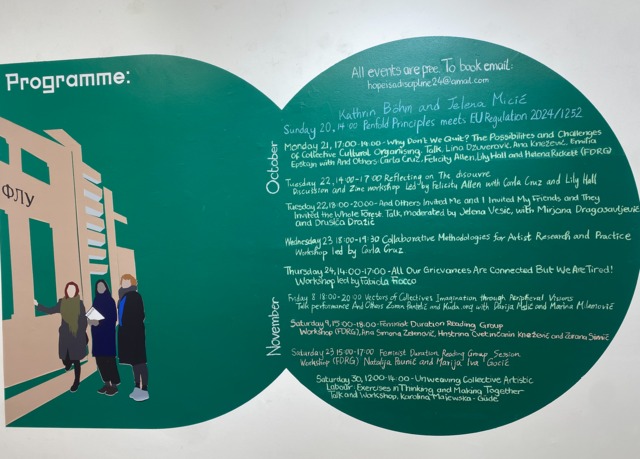 Programme:
ФЛУ
All events are free. To book email:
hopeisadiscipline24@gmail.com
Kathrin Böhm and Jelena Micić
Sunday 20, 14:00 Penfold Principles meets EU Regulation 2024/1252
October
Monday 21, 17:00-19:00 - Why Don't We Quit? The Possibilites and Challenges
of Collective Cultural Organising. Talk, Lina Džuverović, Ana Knežević, Emilia
Epštajn with And Others Carla Cruz, Felicity Allen, Lily Hall and Helena Reckitt (FDRG)
Tuesday 22, 14:00-17:00 Reflecting on The disouvre
Discussion and Zine workshop Led by Felicity Allen with Carla Cruz and Lily Hall
Tuesday 22, 18:00-20:00 - And Others Invited Me and I Invited My Friends and They
Invited the Whole Forest. Talk moderated by Jelena Vesić, with Mirjana Dragosavljević
and Druška Dražić
Wednesday 23 18:00-19:30 Collaborative Methodologies for Artist Research and Practice
Workshop led by Carla Cruz
Thursday 24, 14:00-17:00 - All Our Grievances Are Connected But We Are Tired!
Workshop led by Fabiola Fiocco
November
Friday 8 18:00-20:00 Vectors of Collectives Imagination through Peripheral Visions
Talk performance And Others Zoran Pantelić and Kuda.org with Darija Medić and Marina Milanović
Saturday 9, 15:00-18:00 - Feminist Duration Reading Group
Workshop (FDRG), Ana Simona Zelenović, Hristina Cvetinčanin Knežević and Zorana Simić
Saturday 23 15:00-17:00 Feminist Duration Reading Group Session
Workshop (FDRG) Natalija and Marija Iva Gocić
Saturday 30, 12:00-14:00 - Unweaving Collective Artistic
Labour: Exercises in Thinking and Making Together
Talk and Workshop, Karolina Majewska - Güde